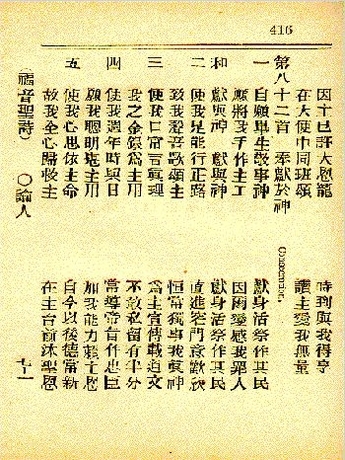 416
因主已許大恩寵　時到與我得享
在天使中同班頌　讚主愛我無量
第八十二首　奉獻於神　Consecration.
一　自願畢生敬事神　獻身活祭作其民
願將我手作主工　因爾愛感我罪人
和　獻與神　獻與神　獻身活祭作其民
二　使我足能行正路　直進窄門意歡欣
致我聲音歌頌主　恒常獨事我真神
三　使我口常言真理　為主宣傳載道文
我之金銀為主用　不敢私留有半分
四　使我週年時與日　常導帝旨作忠臣
願我聰明為主用　加我能力藉主恩
五　使我心思依主命　自今以後德當新
故我全心歸救主　在主台前沐聖恩
（福音聖詩）　〇論人　七十一